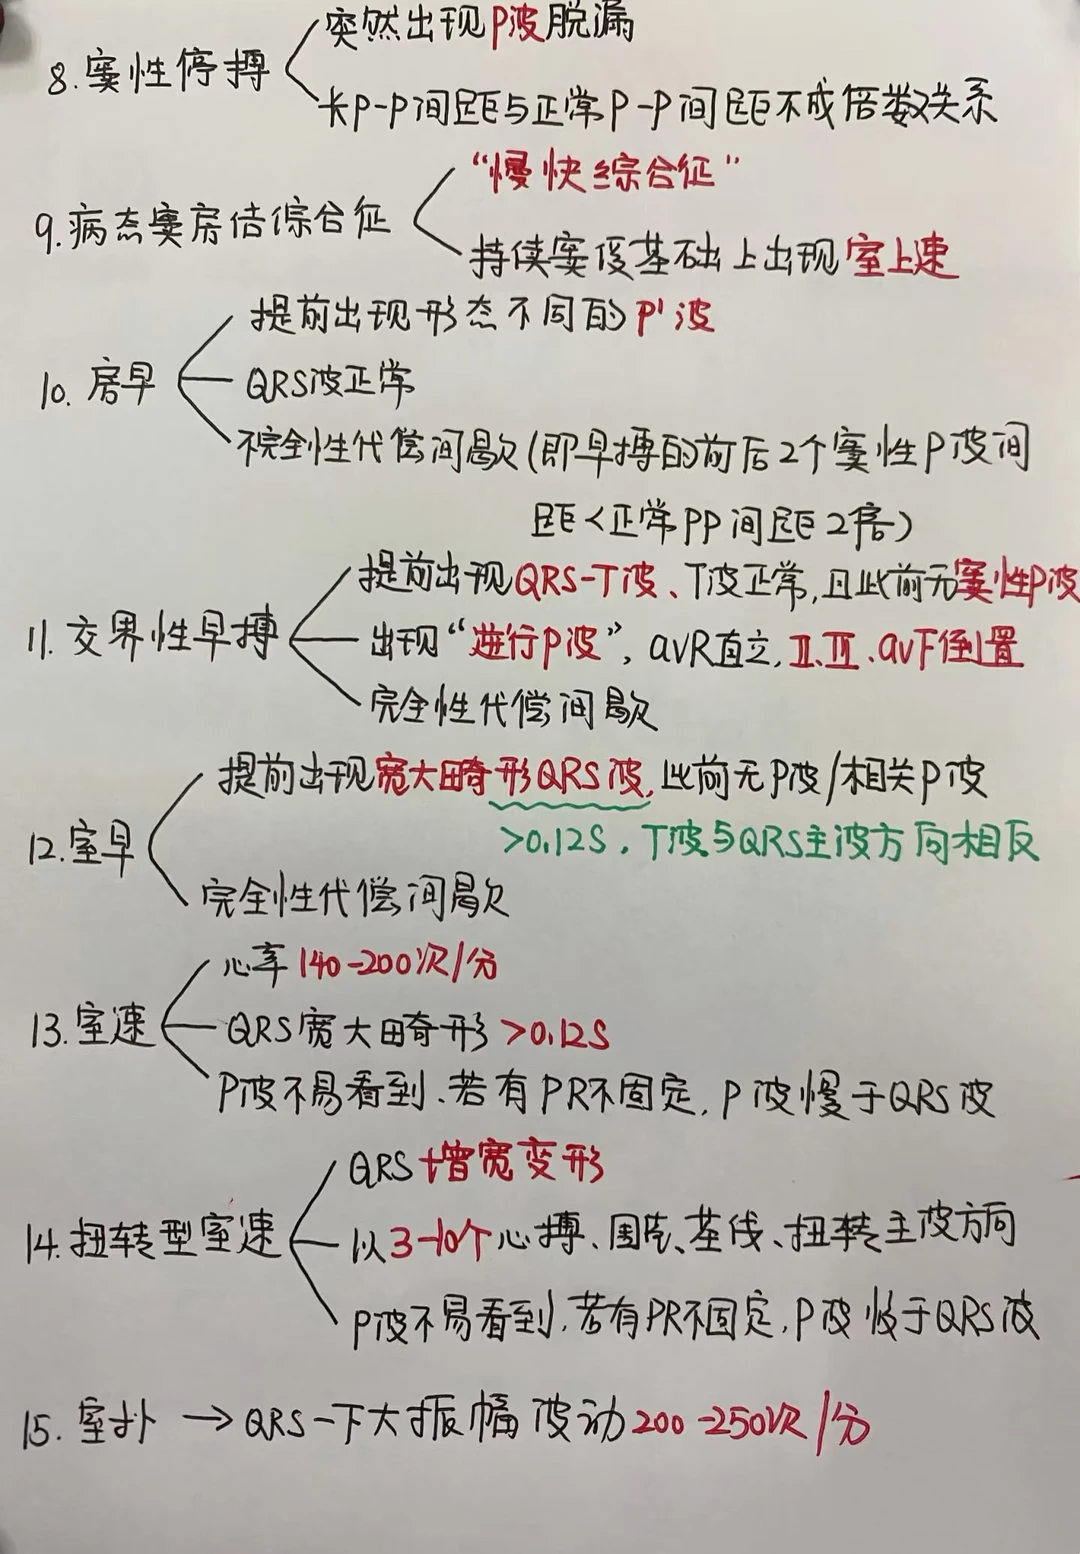 突然出现P波脱漏
8.窦性停搏
长P-P间距与正常P-P间距不成倍数关系
“慢快综合征”
9.病态窦房结综合征
持续窦缓基础上出现室上速
提前出现形态不同的P'波
10.房早
QRS波正常
不完全性代偿间歇(即早搏的前后2个窦性P波间
距<正常PP间距2倍)
提前出现QRS-T波、T波正常,且此前无窦性P波
11.交界性早搏
出现“逆行P波”,aVR直立,Ⅱ、Ⅲ、avF倒置
完全性代偿间歇
提前出现宽大畸形QRS波,此前无P波/相关P波
>0.12S,T波与QRS主波方向相反
12.室早
完全性代偿间歇
心率140-200次/分
13.室速
QRS宽大畸形>0.12S
P波不易看到、若有PR不固定,P波慢于QRS波
QRS增宽变形
14.扭转型室速
以3-10个心搏、围绕、基线、扭转主波方向
P波不易看到、若有PR不固定,P波慢于QRS波
15.室扑→QRS-T大振幅波动200-250次/分